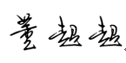 董超超